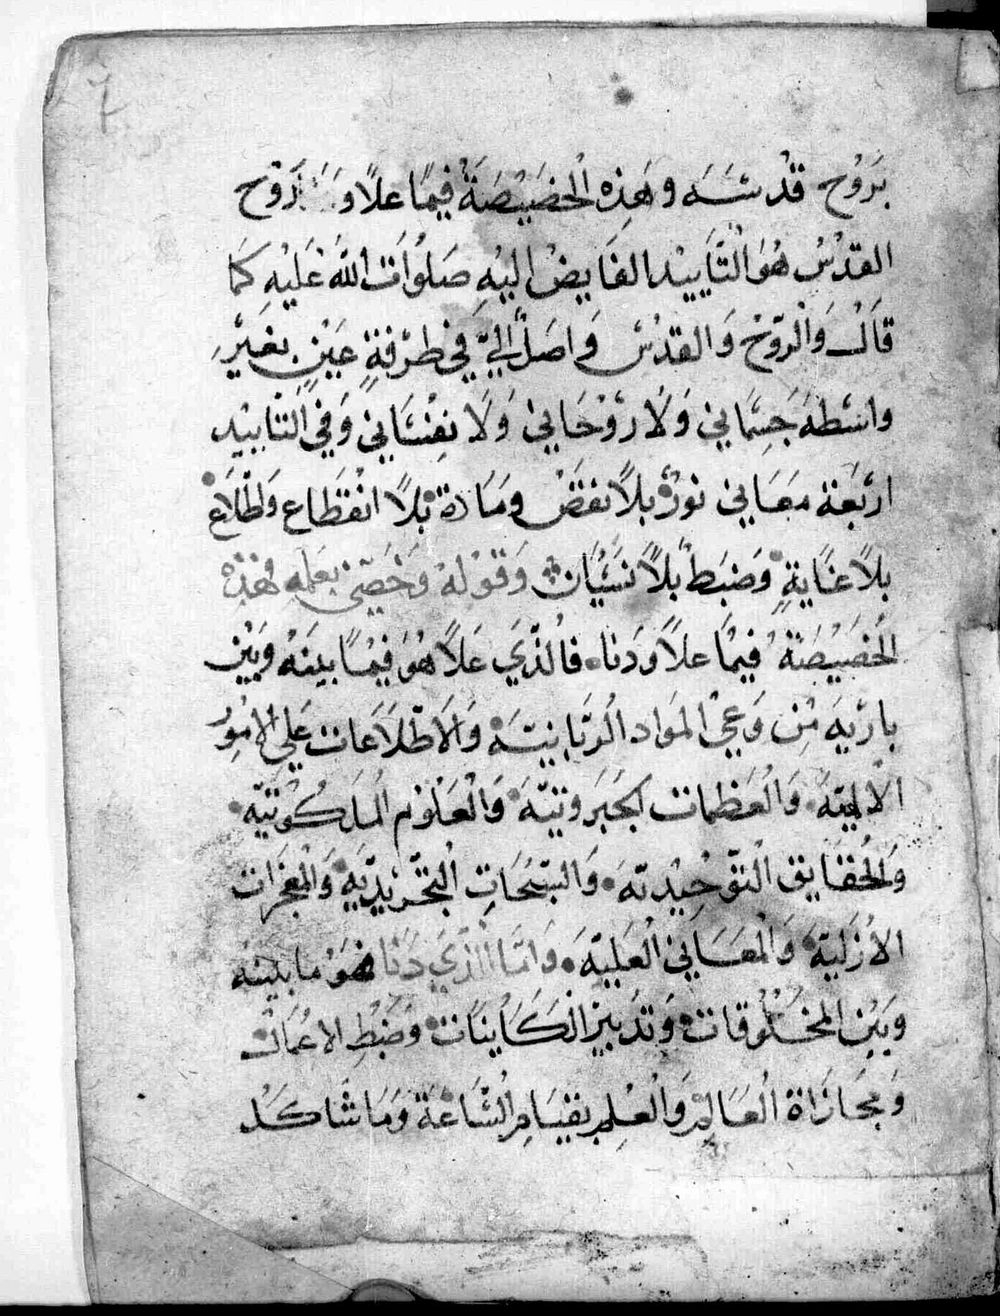 بروح قدسه وهذه الخصيصة فيما علا و روح
القدس هو التأييد الفايض اليه صلوات الله عليه كما
قال والروح والقدس واصل اليّ في طرفة عين بغير
واسطة جسماني ولا روحاني ولا نفساني وفي التاييد
اربعة معاني نور بلا نقض ومادة بلا انقطاع واطلاع
بلا غاية وضبط بلا نسيان وقوله وخصني بعلمه فهذه
الخصيصة فيما علا ودنا فالذي علا هو فيما بينه وبين
باريه من وعي المواد الربانية والاطلاعات علي الامور
الالهية والعظمات الجبروتية والعلوم الملكوتية
والحقايق التوحيدية والسبحات التجريدية والمعجزات
الازلية والمعاني العلية واما الذي دنا فهو ما بينه
وبين المخلوقات وتدبير الكاينات وضبط الاعمال
ومجازاة العالم والعلم بقيام الساعة وما شاكل